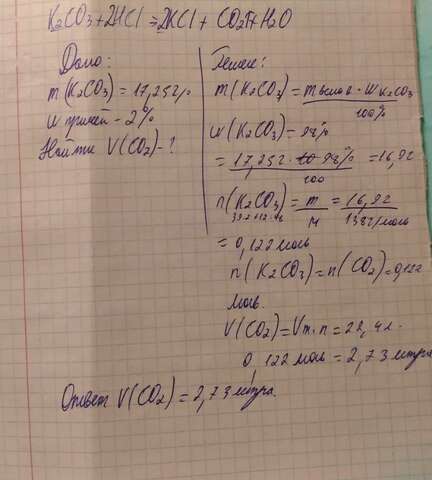 K2CO3+2HCl=2KCl+CO2↑+H2O
Дано:
m(K2CO3)=17,25г
w примей-2%
Найти V(CO2)-?
Решение:
m(K2CO3)=m · w K2CO3
100%
w(K2CO3)=98%
=17,25г · 98%=16,9г
100
n(K2CO3)=m=16,9г
M 138г/моль
=0,122моль
n(K2CO3)=n(CO2)=0,122
моль.
V(CO2)=Vm·n=22,4л·
0,122моль=2,73литра
Ответ V(CO2)=2,73литра.